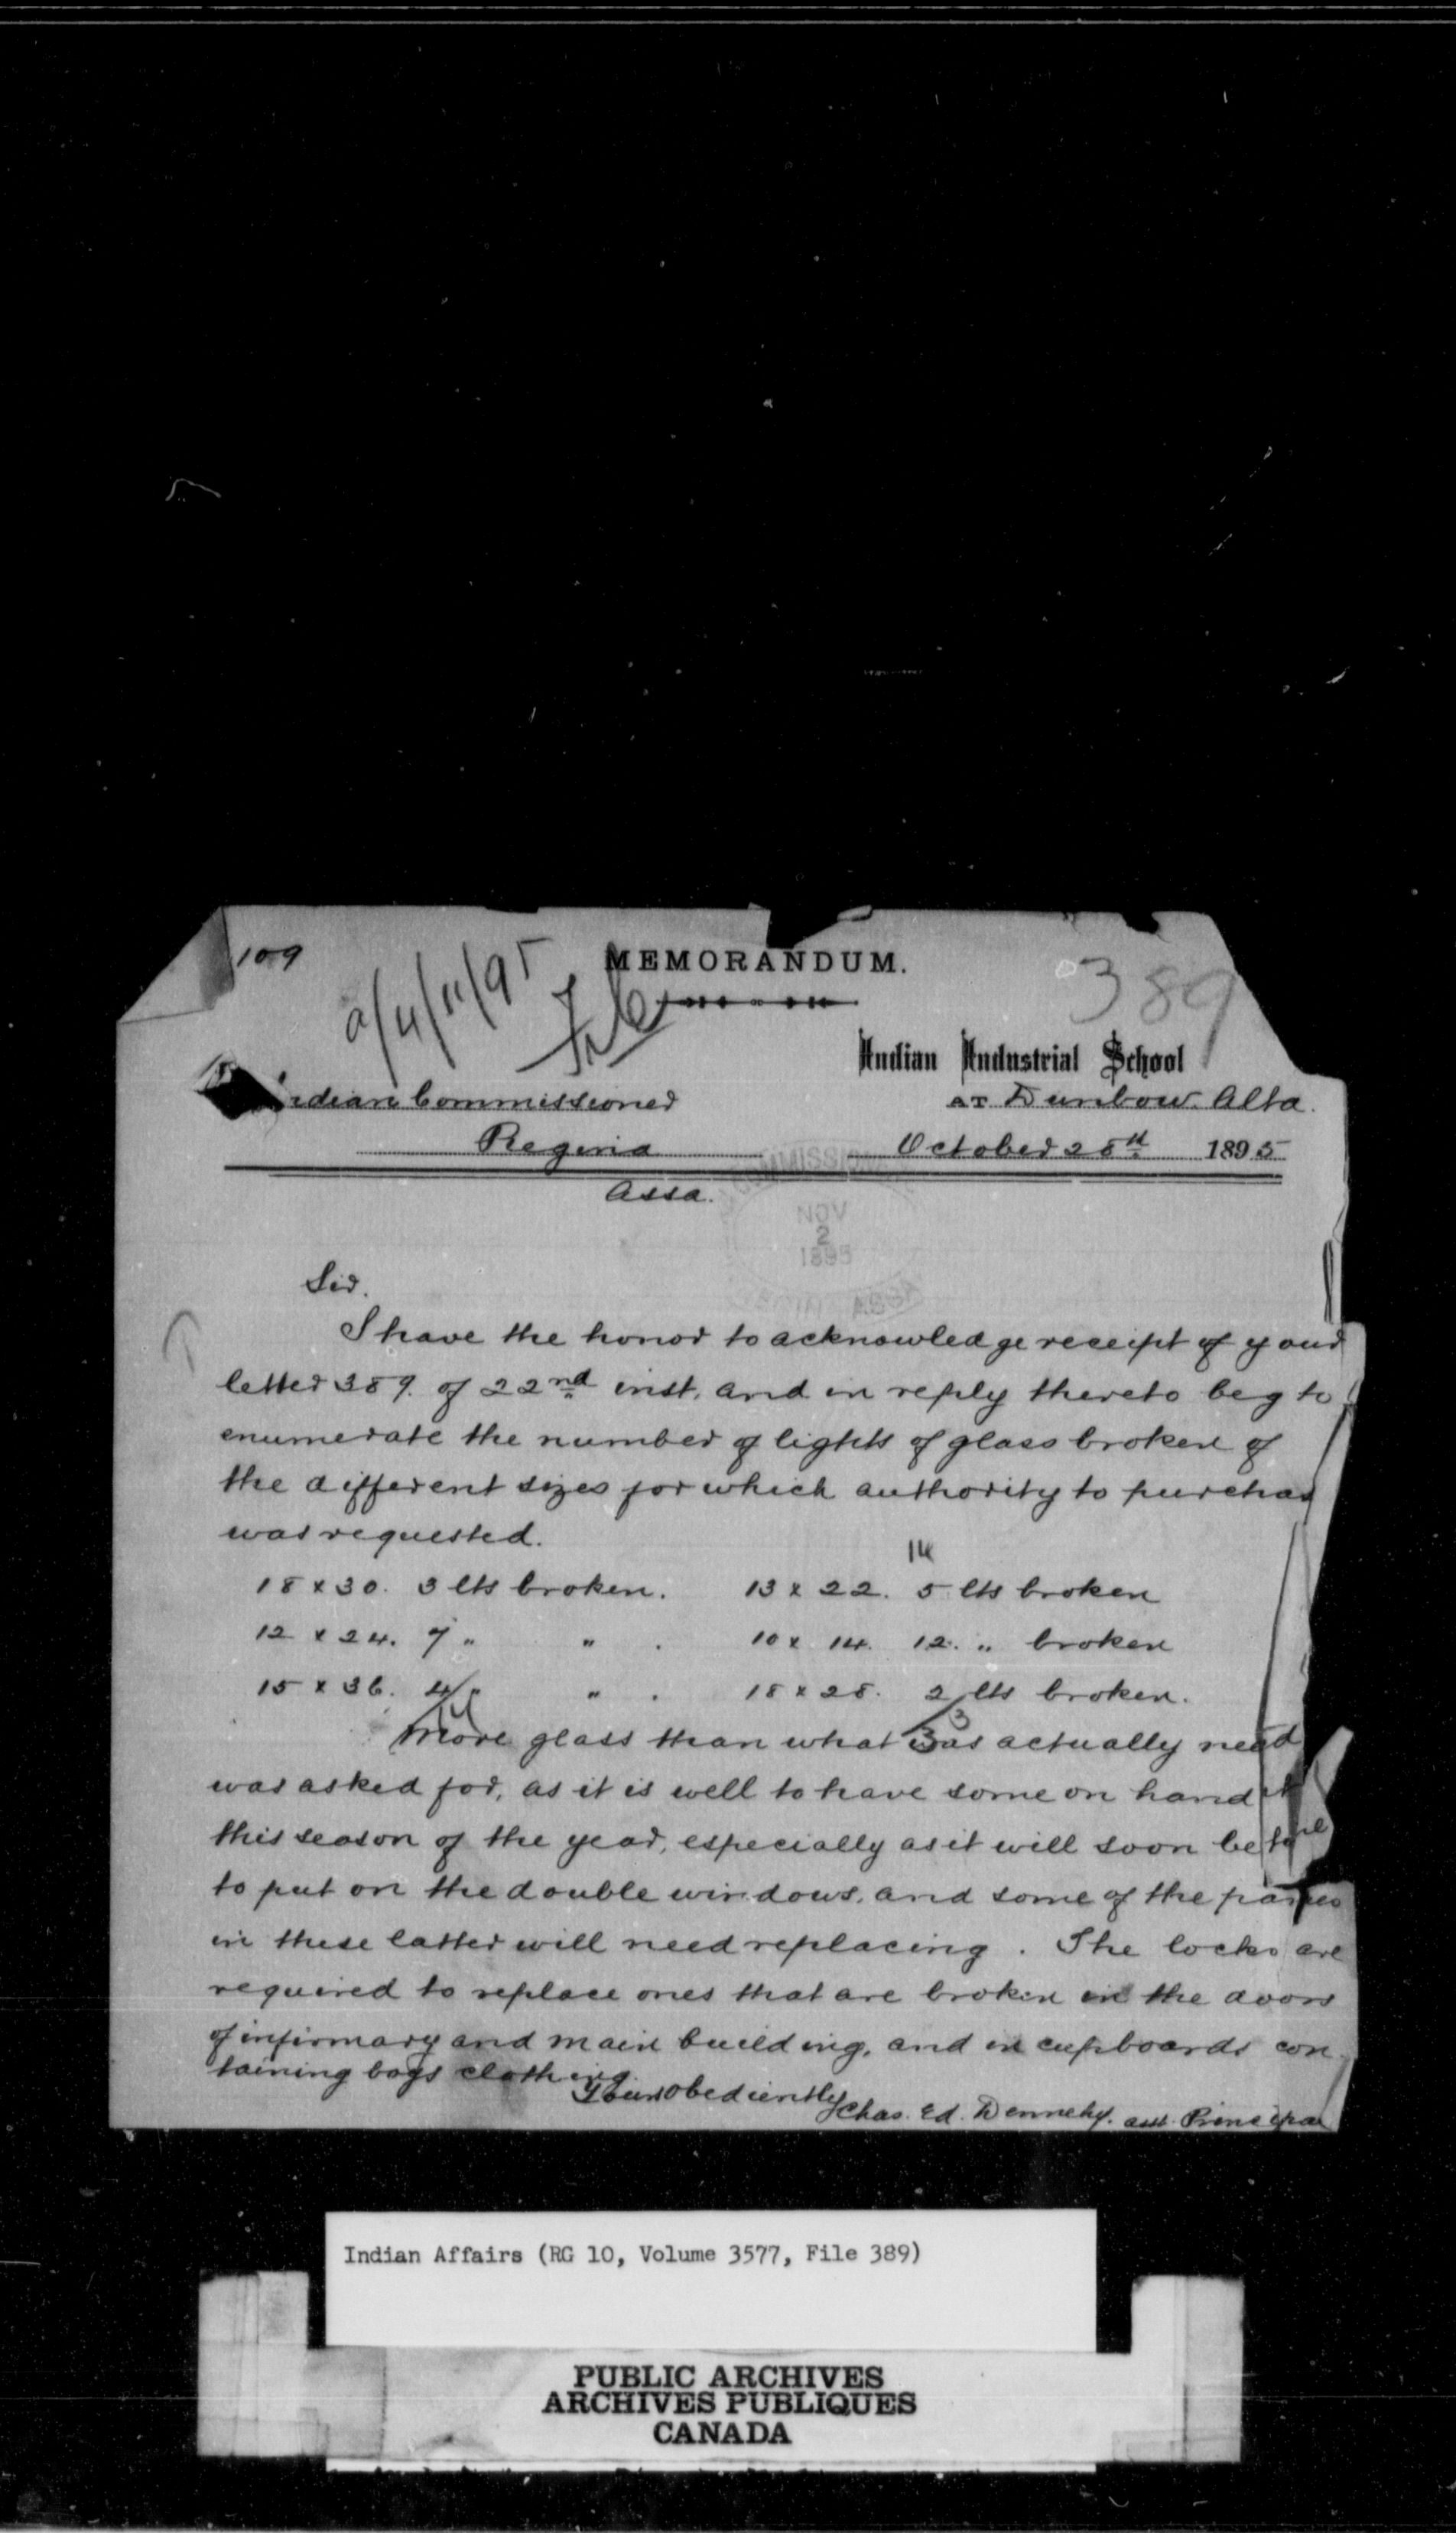 109
MEMORANDUM.
389
a/4/11/95
File
Indian Industrial School
Indian Commissioner
AT Dunbow. Alta.
Regina
October 28th 1895
Assa.
COMMISSIO
NOV
2
1895
Sir.
I have the honor to acknowledge receipt of your
letter 389. of 22nd inst. and in reply thereto beg to
enumerate the number of lights of glass broken of
the different sizes for which authority to purchas
was requested.
14
18 x 30. 3 lts broken. 13 x 22. 5 lts broken
12 x 24. 7 " " . 10 x 14. 12. " broken
15 x 36. 4 " " . 18 x 28. 2 lts broken.
More glass than what was actually need
was asked for, as it is well to have some on hand at
this season of the year, especially as it will soon be
to put on the double windows, and some of the panes
in these latter will need replacing. The locks are
required to replace ones that are broken in the doors
of infirmary and main building, and in cupboards con
taining boys clothing.
Your obediently
Chas. Ed. Dennehy. asst. Principal
Indian Affairs (RG 10, Volume 3577, File 389)
PUBLIC ARCHIVES
ARCHIVES PUBLIQUES
CANADA